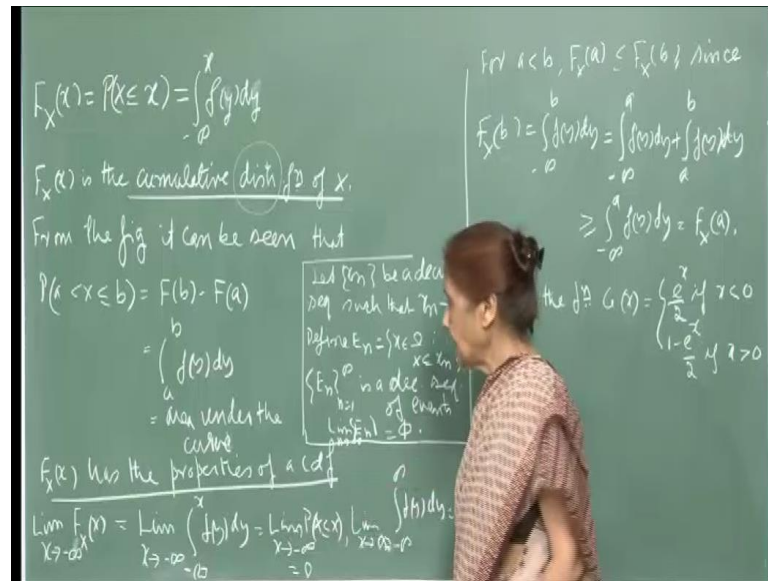 F_X(x) = P(X ≤ x) = ∫_{-∞}^{x} f(y)dy
F_X(x) is the cumulative distn fn of X.
From the fig it can be seen that
P(a < X ≤ b) = F(b) - F(a)
= ∫_{a}^{b} f(y)dy
= area under the
curve
F_X(x) has the properties of a cdf
Lim_{x→-∞} F_X(x) = Lim_{x→-∞} ∫_{-∞}^{x} f(y)dy = Lim_{x→-∞} P(X<x), Lim_{x→∞} ∫_{-∞}^{∞} f(y)dy =
= 0
Let {xn} be a dec
seq such that xn →
Define En = {x ∈ Ω :
x ≤ xn
{En}_{n=1}^{∞} is a dec seq
of events
Lim{En} = Φ.
For a<b, F_X(a) ≤ F_X(b), since
F_X(b) = ∫_{-∞}^{b} f(y)dy = ∫_{-∞}^{a} f(y)dy + ∫_{a}^{b} f(y)dy
≥ ∫_{-∞}^{a} f(y)dy = F_X(a).
the fn G(x) = { e^x/2 if x<0
1 - e^{-x}/2 if x>0